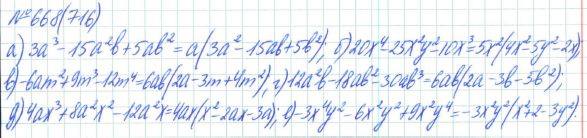 №668(716)
а) 3a³-15a²b+5ab²=a(3a²-15ab+5b²); б) 20x⁴-25x²y²-10x³=5x²(4x²-5y²-2x)
в) -6am²+9m³-12m⁴=6ab(2a-3m+4m²), г) 12a²b-18ab²-30ab³=6ab(2a-3b-5b²);
д) 4ax³+8a²x²-12a²x=4ax(x²-2ax-3a); е) -3x⁴y²-6x²y²+9x²y⁴=-3x²y²(x²+2-3y²).